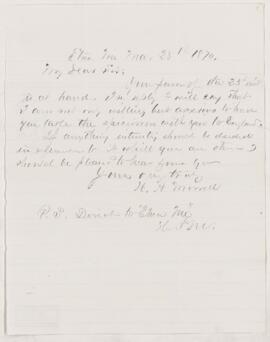 Etna Me Mar. 28th 1870.
My Dear Sir:
Your favor of the 23d inst
is at hand. In reply I will say that
I am not only willing but anxious to have
you take the specimen with you to England.
If anything should be decided
in reference to it will you
should be pleased to hear from you
Yours very truly
P.S. Direct to Etna Me